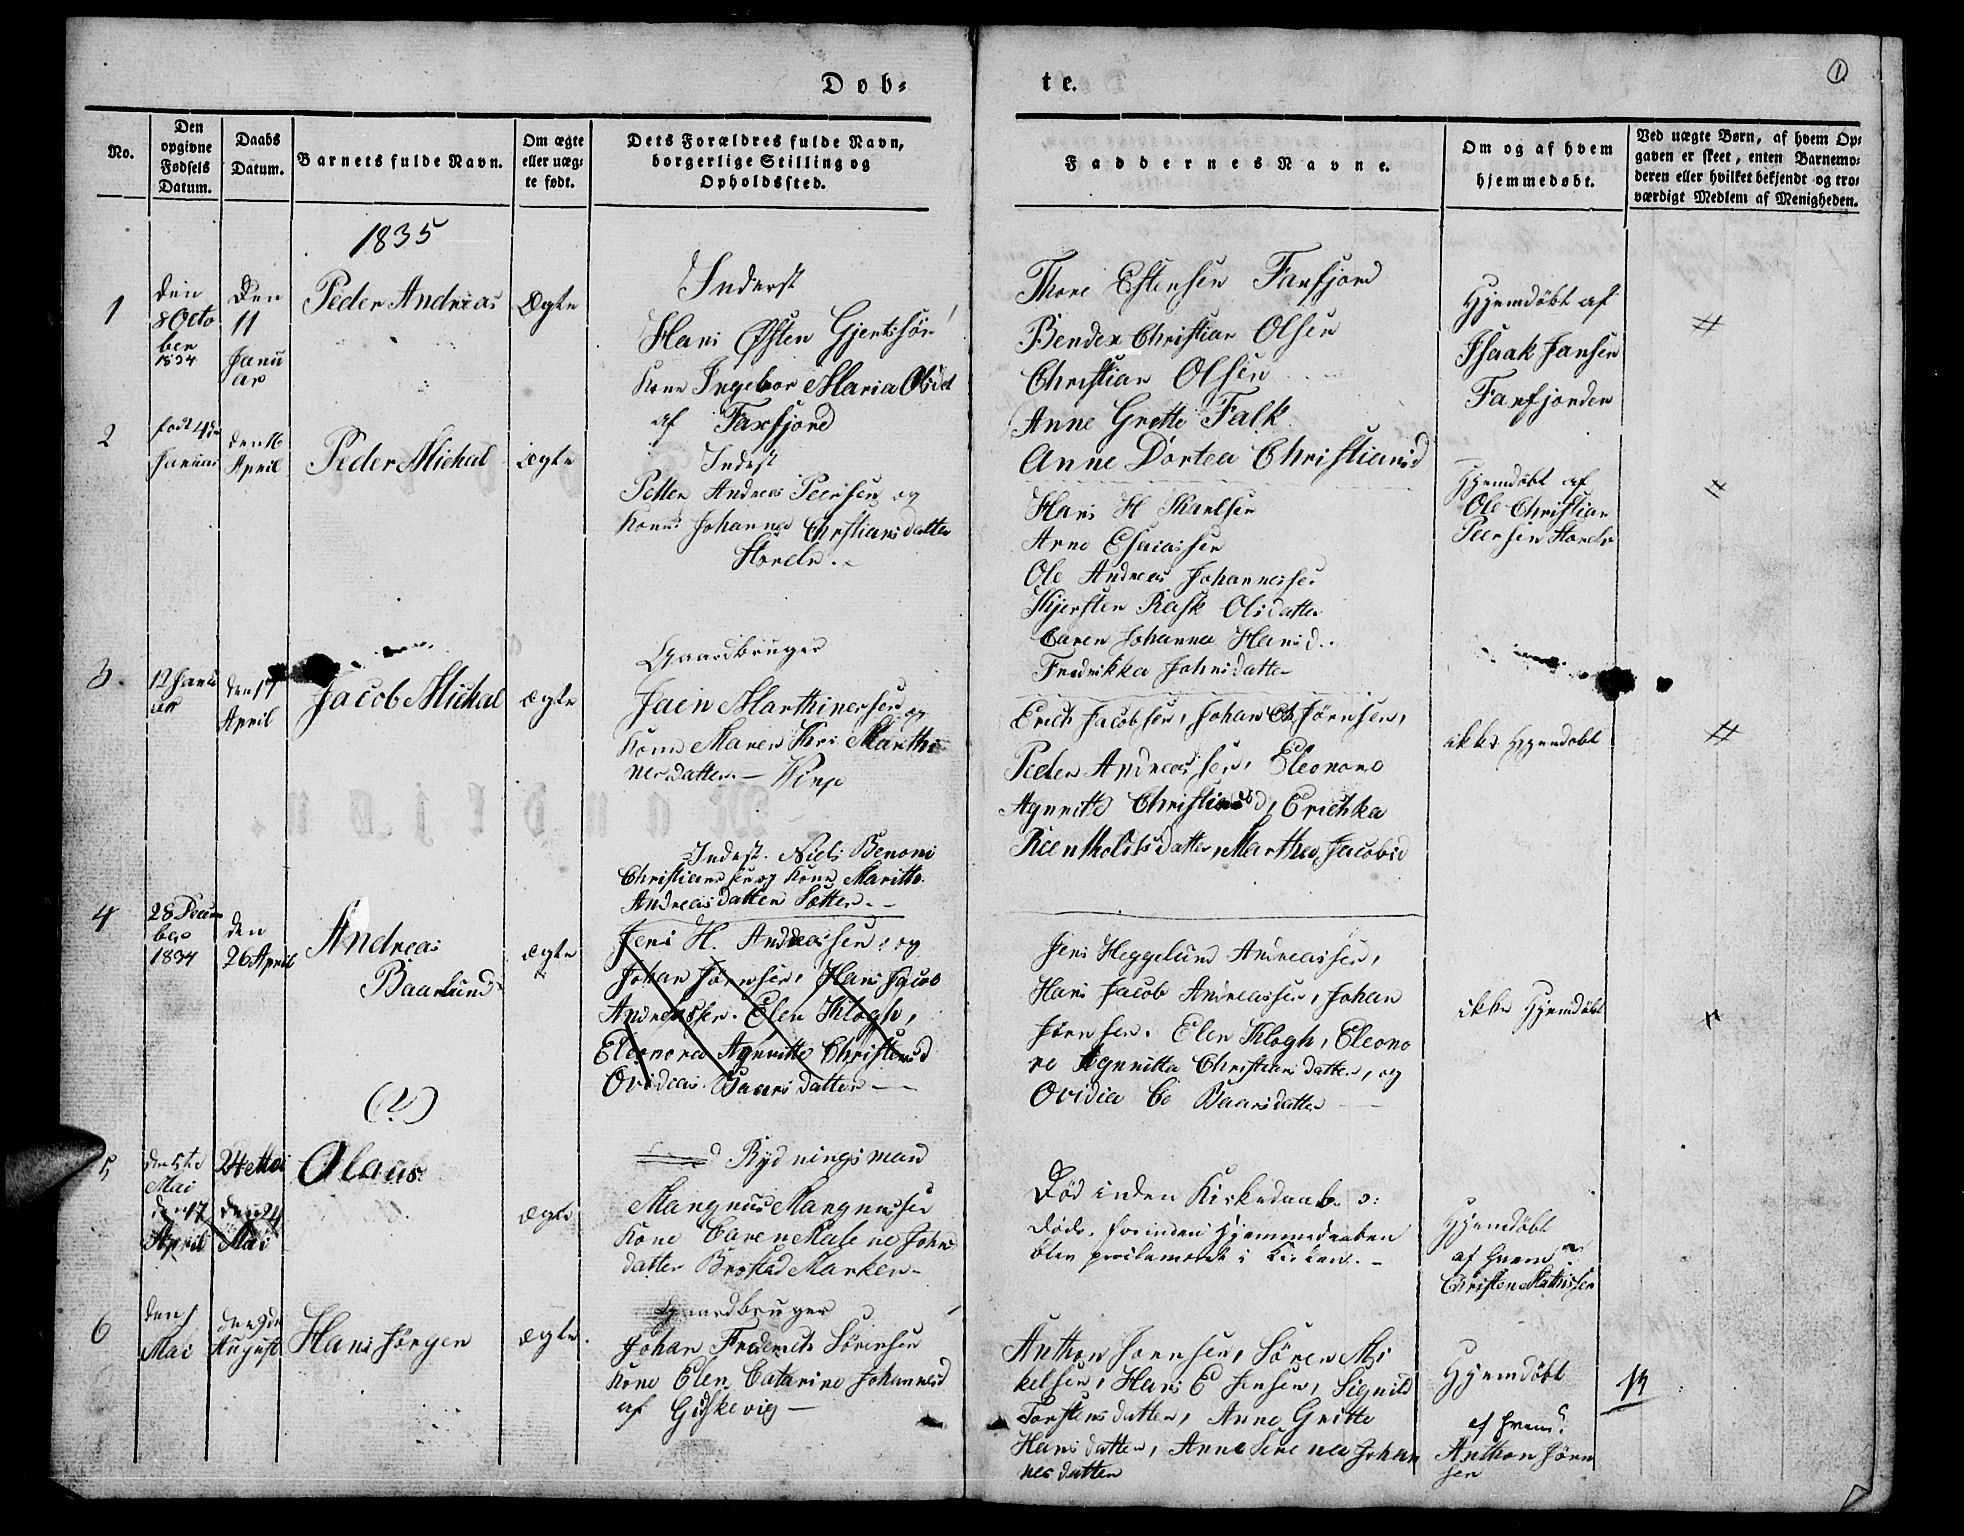 Døb-
te.
1
No.
Den
opgivne
Fødsels
Datum.
Daabs
Datum.
Barnets fulde Navn.
Om ægte
eller uæg-
te født.
Dets Forældres fulde Navn,
borgerlige Stilling og
Opholdssted.
Faddernes Navne.
Om og af hvem
hjemmedøbt.
Ved uægte Børn, af hvem Op-
gaven er skeet, enten Barnemo-
deren eller hvilket bekjendt og tro-
værdigt Medlem af Menigheden.
1835
1
den
8 Octo
ber
1834
Den
11
Janu
ar
Peder Andreas
Ægte
Inderst
Hans Østen Gjertsøn
Kone Ingebor Maria Olsdat
af Faxfjord
Thore Estensen Faxfjord
Bendex Christian Olsen
Christian Olsen
Anne Grette Falk
Anne Dortea Christiansd
Hjemdøbt af
Isaak Jansen
Faxfjorden
2
født 4de
Januar
den 16
April
Peder Michal
ægte
Inderst
Petter Andreas Peersen og
Kone: Johanna Christiansdatter
Hans H Karlsen
Arne Esaiassen
Ole Andreas Johannessen
Kjersten Rask Olsdatter
Caren Johanna Hansd.
Fredrikka Johnsdatter
Hjemdøbt af
Ole Christian
Peersen
3.
12 Janu
ar
den 17
April
Jacob Michal
ægte
Gaardbruger
Marthinersen og
Kone Maren Marthi
nersdatter.
Erich Jacobsen, Johan Jørnsen,
Peder Andreassen, Eleonore
Agnritte Christiansd, Erichka
Reentholdtsdatter, Marthea Jacobsd
ikke Hjemdøbt
4
28 Decem
ber
1834
den
26 April
Andreas
Baarlund
ægte
Inderst. Niels Benoni
Christiansen og Kone Maritta
Andreasdatter Løtter.
Jens H. Andreassen, og
Johan Jørnsen, Hans Jacob
Andreassen. Elen Klogh,
Eleonora Agnritte Christiansd
Ovidia Baarsdatter
Jens Heggelund Andreassen,
Hans Jacob Andreassen, Johan
Jørnsen. Elen Klogh, Eleono
re Agnritta Christiansdatter, og
Ovidia Baarsdatter
ikke Hjemdøbt
(2)
5
den 5te
Mai
den 17
April
24 Mai
den 24
Mai
Olaus.
ægte
Rydningsmand
Mangnus Mangnussen
Kone Caren Malene Johns
datter Brøstad Marken
Død inden Kirkedaab. ɔ:
døde, forinden Hjemmedaaben
blev proclameret i Kirken.
Hjemdøbt
af hvem?
Christen Mathissen
6
den
Mai
den 9de
August
Hans Jørgen
ægte.
Gaardbruger
Johan Frederich Sørensen
Kone Elen Catarine Johannesd
af Gidskevig
Anthon Jørnsen, Søren Mi
kelsen, Hans E Jensen, Signild
Torstensdatter, Anne Gritte
Hansdatter, Anne Serena Johan
nesdatter
Hjemdøbt
af hvem?
Anthon Jørn
sen